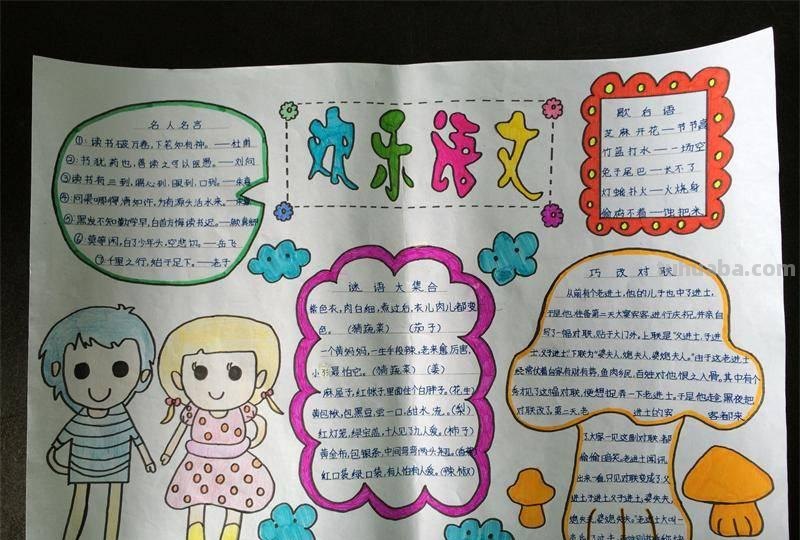 欢乐语文
名人名言
①：读书破万卷，下笔如有神。——杜甫
②：书犹药也，善读之可以医愚。——刘向
③读书有三到，谓心到，眼到，口到。——朱熹
④：问渠哪得清如许，为有源头活水来。——朱熹
⑤：黑发不知勤学早，白首方悔读书迟。——颜真卿
⑥：莫等闲，白了少年头，空悲切。——岳飞
⑦千里之行，始于足下。——老子
歇后语
芝麻开花——节节高
竹篮打水——一场空
兔子尾巴——长不了
灯蛾扑火——火烧身
偷鸡不着——蚀把米
谜语大集合
紫色衣，肉白细，煮过后，衣儿肉儿都变
色。（猜蔬菜）（茄子）
一个黄妈妈，一生手段辣，老来愈厉害，
小孩最怕它。（猜蔬菜）（姜）
麻屋子，红帐子，里面住个白胖子。（花生）
黄包袱，包黑豆，尝一口，甜水流。（梨）
红灯笼，绿宝盖，十人见了九人爱。（柿子）
黄金布，包银条，中间弯弯两头翘。（香蕉）
红口袋，绿口袋，有人怕有人爱。（辣椒）
巧改对联
从前有个老进士，他的儿子也中了进士，
于是他，准备第二天大宴宾客，进行庆祝，并亲自
写了一幅对联，贴于大门外。上联是“父进士，子进
士，父子进士”下联为“婆夫人，媳夫人，婆媳夫人。”由于这老进士
经常仗着自家有财有势，鱼肉乡民，百姓对他，恨之入骨。其中有个
秀才见了这幅对联，便想捉弄一下老进士。于是他趁黑夜把
对联改了。第三天，老 进士的宾 客都来
了大家一见这副对联，都
偷偷自暗笑。老进士闻讯
出来一看，只见对联变成了“父
进土，子进土，父子进土，婆失夫，
媳失夫，婆媳失夫。”老进士大叫一
tuhuaba.com